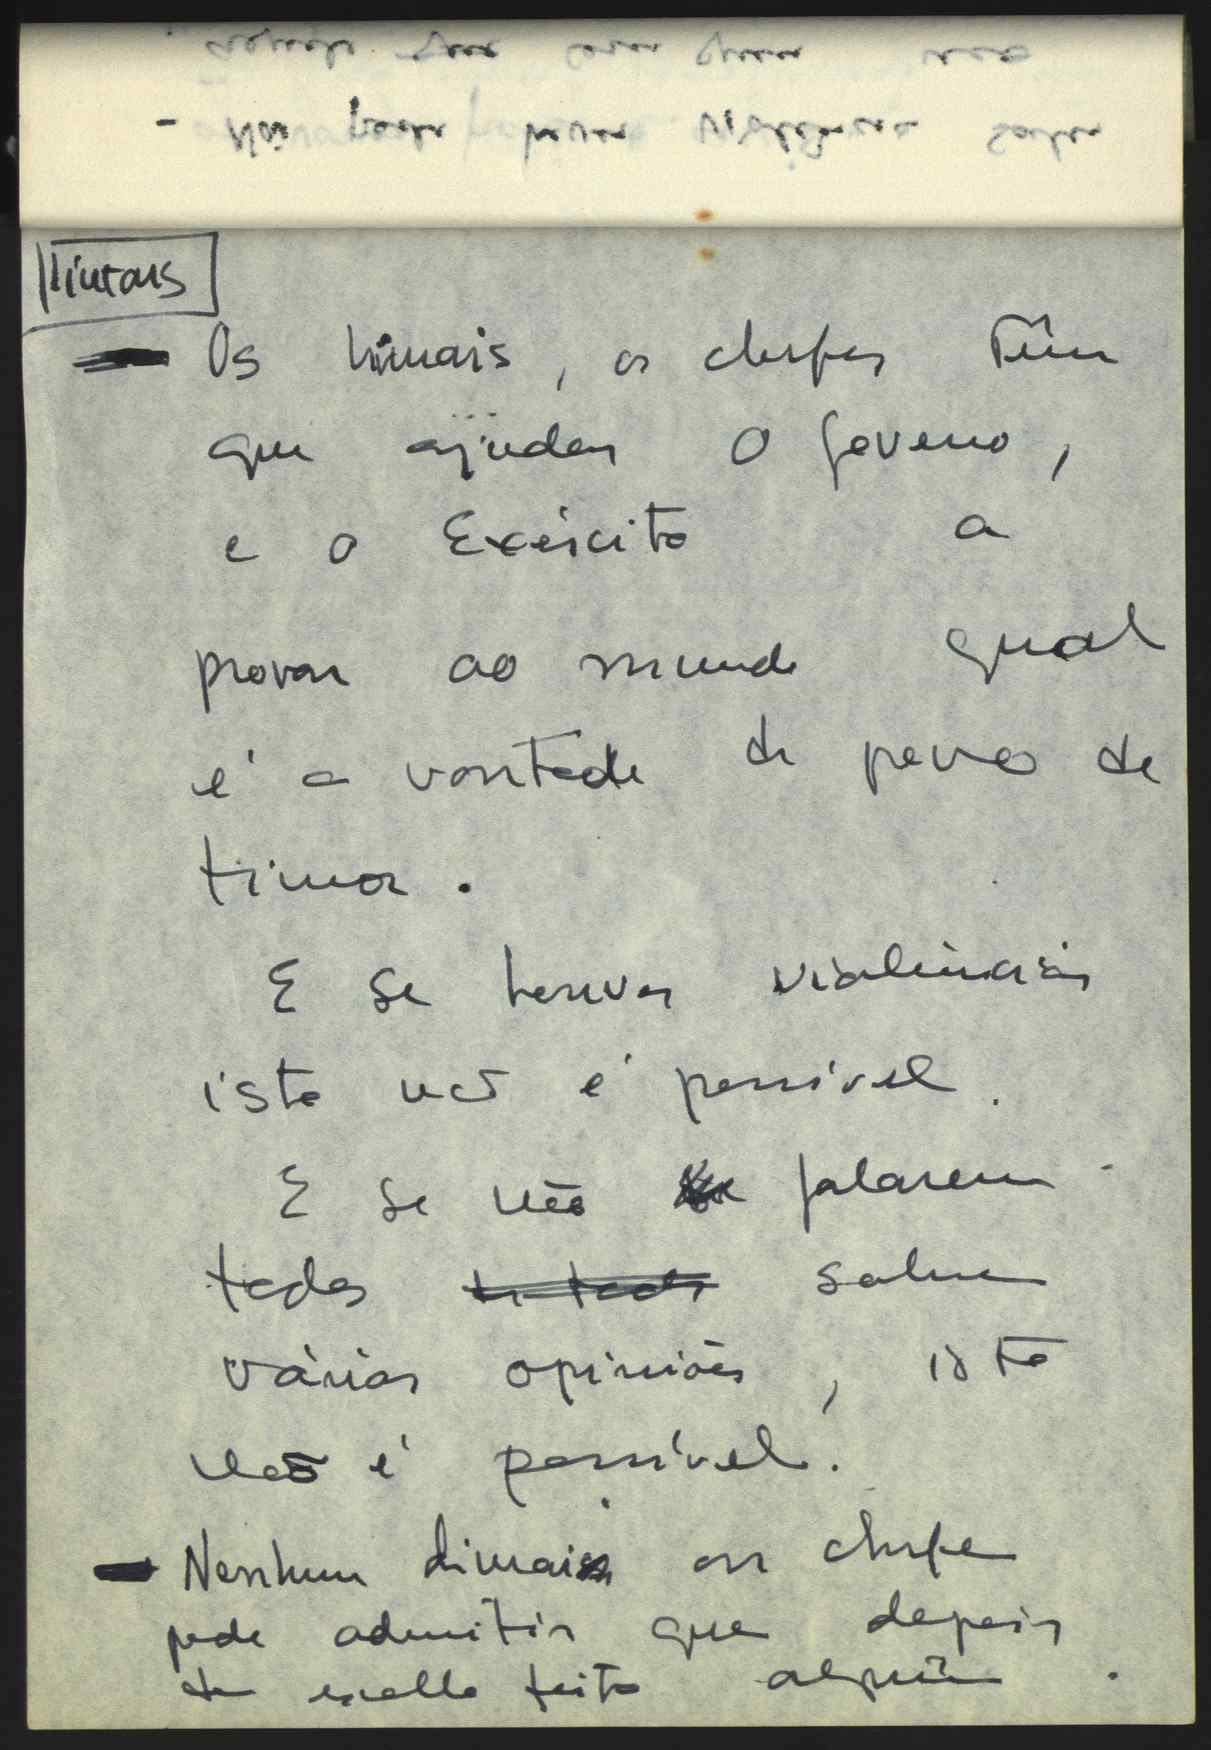 Os liurais, os chefes têm
que ajudar o governo,
e o Exército a
provar ao mundo qual
é a vontade do povo de
timor.
E se houver violências
isto não é possível.
E se não falarem
todos sobre
várias opiniões, isto
não é possível.
Nenhum liurais ou chefe
pode admitir que depois
da escolha feita alguém